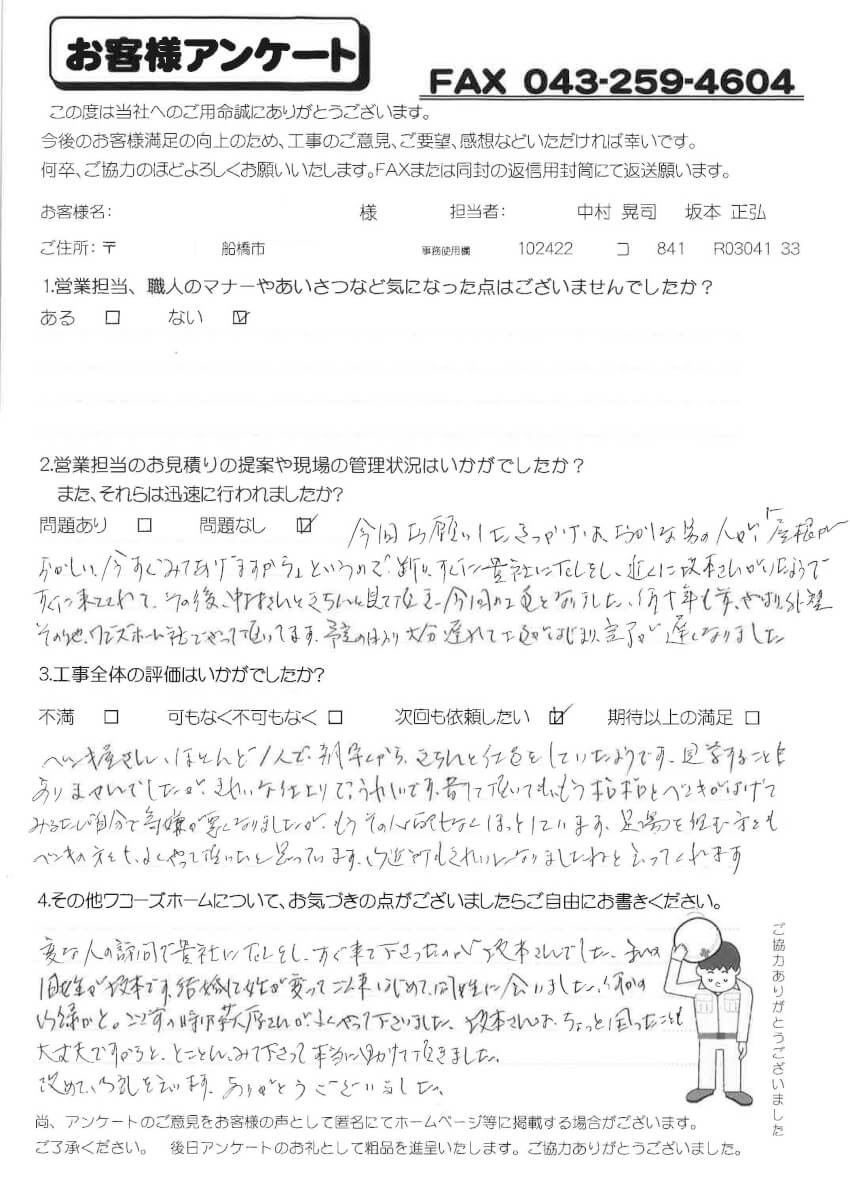 お客様アンケート
FAX 043-259-4604
この度は当社へのご用命誠にありがとうございます。
今後のお客様満足の向上のため、工事のご意見、ご要望、感想などいただければ幸いです。
何卒、ご協力のほどよろしくお願いいたします。FAXまたは同封の返信用封筒にて返送願います。
お客様名: 様 担当者: 中村 晃司 坂本 正弘
ご住所:〒 船橋市 事務使用欄 102422 コ 841 R03041 33
1.営業担当、職人のマナーやあいさつなど気になった点はございませんでしたか？
ある □ ない ☑
2.営業担当のお見積りの提案や現場の管理状況はいかがでしたか？
また、それらは迅速に行われましたか?
問題あり □ 問題なし ☑ 今回お願いしたきっかけは、おかしな男の人が「屋根が
おかしい、今すぐみてあげますから」というので断り、すぐに貴社にTELをし、近くに坂本さんがいたようで
すぐに来てくれて、その後、中村さんときちんと見て頂き今回の工事となりました。何十年も前、やはり外壁
その他、ワコーズホーム社でやって頂いてます。予定の日より大分遅れて工事がはじまり、完了が遅くなりました
3.工事全体の評価はいかがでしたか?
不満 □ 可もなく不可もなく □ 次回も依頼したい ☑ 期待以上の満足 □
ペンキ屋さん、ほとんど1人で朝早くから、きちんと仕事をしていたようです。見学することも
ありませんでしたが、きれいな仕上りでうれしいです。
みるたび自分で機嫌が悪くなりましたが、もうその心配もなくほっとしています。足場を組む方も
ペンキの方も、よくやって頂いたと思っています。ご近所もきれいになりましたねと言ってくれます
4.その他ワコーズホームについて、お気づきの点がございましたらご自由にお書きください。
変な人の訪問で貴社にTELをし、すぐ来て下さったのが坂本さんでした。私の
旧姓が坂本です。結婚して姓が変って以来はじめて、同姓に会いました。何かの
ご縁かと。 の時は萩原さんがよくやって下さいました。坂本さんは、ちょっと困ったことも
大丈夫ですからと、とことん、みて下さって本当に助けて頂きました。
改めて、お礼を言います。ありがとうございました。
ご協力ありがとうございました
尚、アンケートのご意見をお客様の声として匿名にてホームページ等に掲載する場合がございます。
ご了承ください。 後日アンケートのお礼として粗品を進呈いたします。ご協力ありがとうございました。